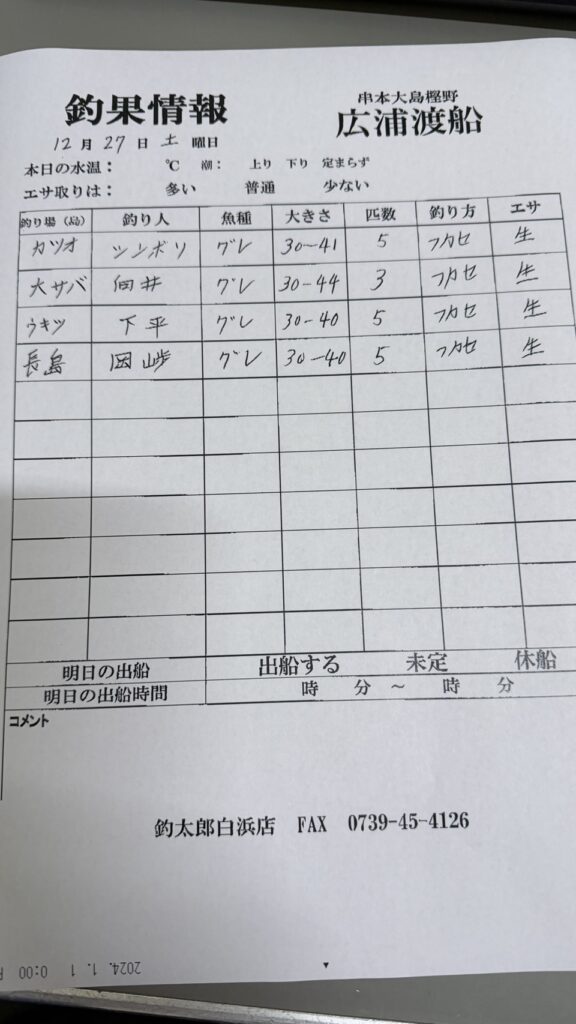 釣果情報
串本大島樫野
広浦渡船
12月27日土曜日
本日の水温： ℃ 潮： 上り 下り 定まらず
エサ取りは： 多い 普通 少ない
釣り場（島） 釣り人 魚種 大きさ 匹数 釣り方 エサ
カツオ ツンボリ グレ 30-41 5 フカセ 生
大サバ 向井 グレ 30-44 3 フカセ 生
ウキツ 下平 グレ 30-40 5 フカセ 生
長島 グレ 30-40 5 フカセ 生
明日の出船 出船する 未定 休船
明日の出船時間 時 分 ～ 時 分
コメント
釣太郎白浜店 FAX 0739-45-4126
2024. 1. 1 0:00